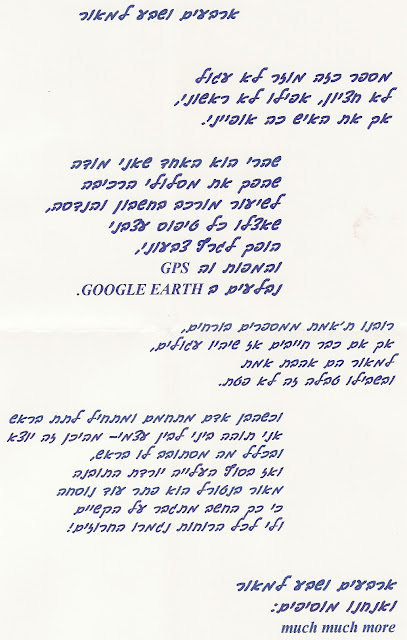 ארבעים ושבע למאור
מספר כזה מוזר לא עגול
לא חציון, אפילו לא ראשוני,
אך את האיש כה אופייני.
שהרי הוא האחד שאני מודה
שהפך את מסלולי הרכיבה
לשיעור מורכב בחשבון והנדסה,
שאצלו כל טיפוס עצבני
הופך לגרף צבעוני,
והמפות וה GPS
נבלעים ב GOOGLE EARTH.
רובנו ת'אמת ממספרים בורחים,
אך אם כבר חייבים אז שיהיו עגולים,
למאור הם אהבת אמת
ובשבילו טבלה זה לא פחת.
וכשהבן אדם מתחמם ומתחיל לתת בראש
אני תוהה ביני לבין עצמי– מהיכן זה יוצא
ובכלל מה מסתובב לו בראש,
ואז בסוף העלייה יורדת התובנה
מאור בנטורל הוא פתר עוד נוסחה
כי ככה החשב מתגבר על הקשיים
ולי לכל הרוחות נגמרו החרוזים!
ארבעים ושבע למאור
ואנחנו מוסיפים:
much much more